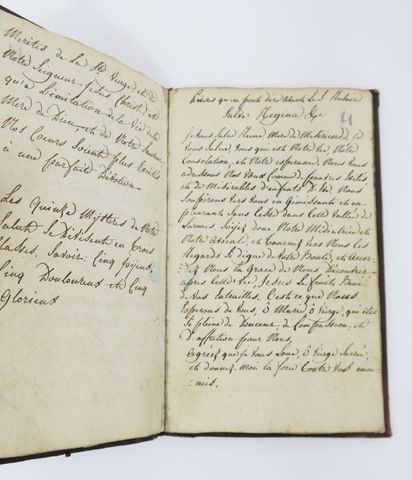 Merites de la Ste Vierge, et de
Notre Seigneur Jesus Christ, et
qu'a Limitation de la Vie de la
Mere de Dieu, et de Notre
Nos Coeurs Soient plus
à une parfaite Devotion.
Les Quinze Mystères de Notre
Salut Se Divisent en trois
Classes, Savoir; Cinq Joyeux,
Cinq Douloureux et Cinq
Glorieux
qu'on peut dire le S. Rosaire
Salve Regina &c
4
je vous Salue Reine Mere de Misericorde, je
vous Salue, vous qui est Notre Vie, Notre
Consolation, et Notre esperance, Nous vous
adressons Nos Voeux Comme pauvres Exilés
et de Miserables d'enfants D'Eve Nous
Soupirons vers vous en Gemissants et en
pleurants Sans Cesse dans Cette Vallée de
larmes Soyez donc Notre Mediatrice et
Notre avocate, et tournez vers Nous les
Regards Si digne de votre Bonté, et
Nous la Grace de Nous
apres Cette Vie Jesus le fruits Beni
de Vos Entrailles, C'est ce que Nous
Esperons de Vous, ô Marie ô Vierge, qui êtes
Si pleine de Douceur, de Compassion, et
D'affection pour Nous,
agréés que je vous Loue, ô Vierge Sacrée,
et donnez Moi la force Contre vos enne-
mis.